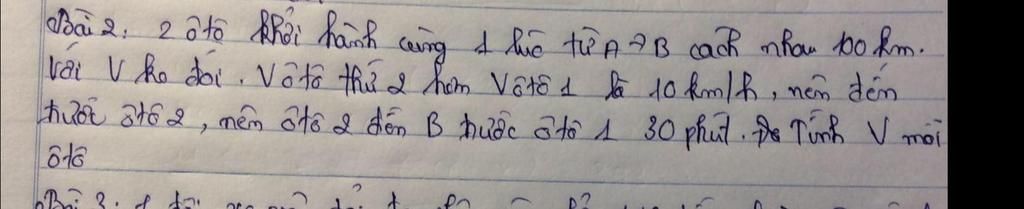 Bài 2: 2 ôtô khởi hành cùng 1 lúc từ A → B cách nhau 100 km.
Với V ko đổi. V ôtô thứ 2 hơn V ôtô 1 là 10 km/h, nên đến
trước ôtô 2, nên ôtô 2 đến B trước ôtô 1 30 phút. Tính V mỗi
ôtô
Bài 3: